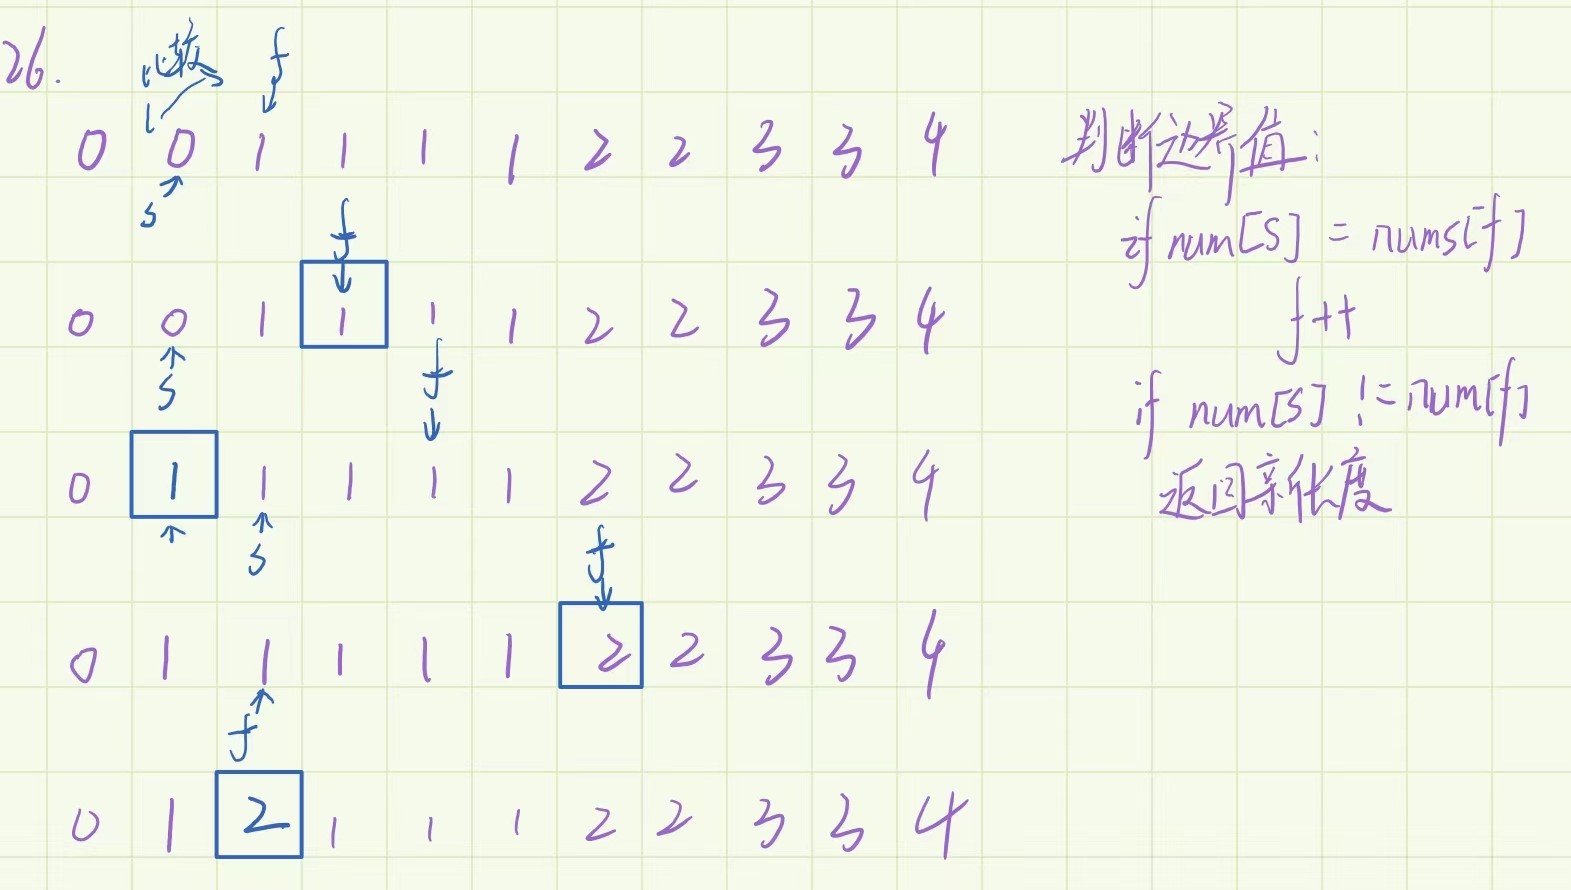 26.
比较
f
0 0 1 1 1 1 2 2 3 3 4
s
f
0 0 1 1 1 1 2 2 3 3 4
s
f
0 1 1 1 1 1 2 2 3 3 4
s
f
0 1 1 1 1 1 2 2 3 3 4
f
0 1 2 1 1 1 2 2 3 3 4
判断边界值:
if num[S] = nums[f]
f++
if num[S] != num[f]
返回新长度